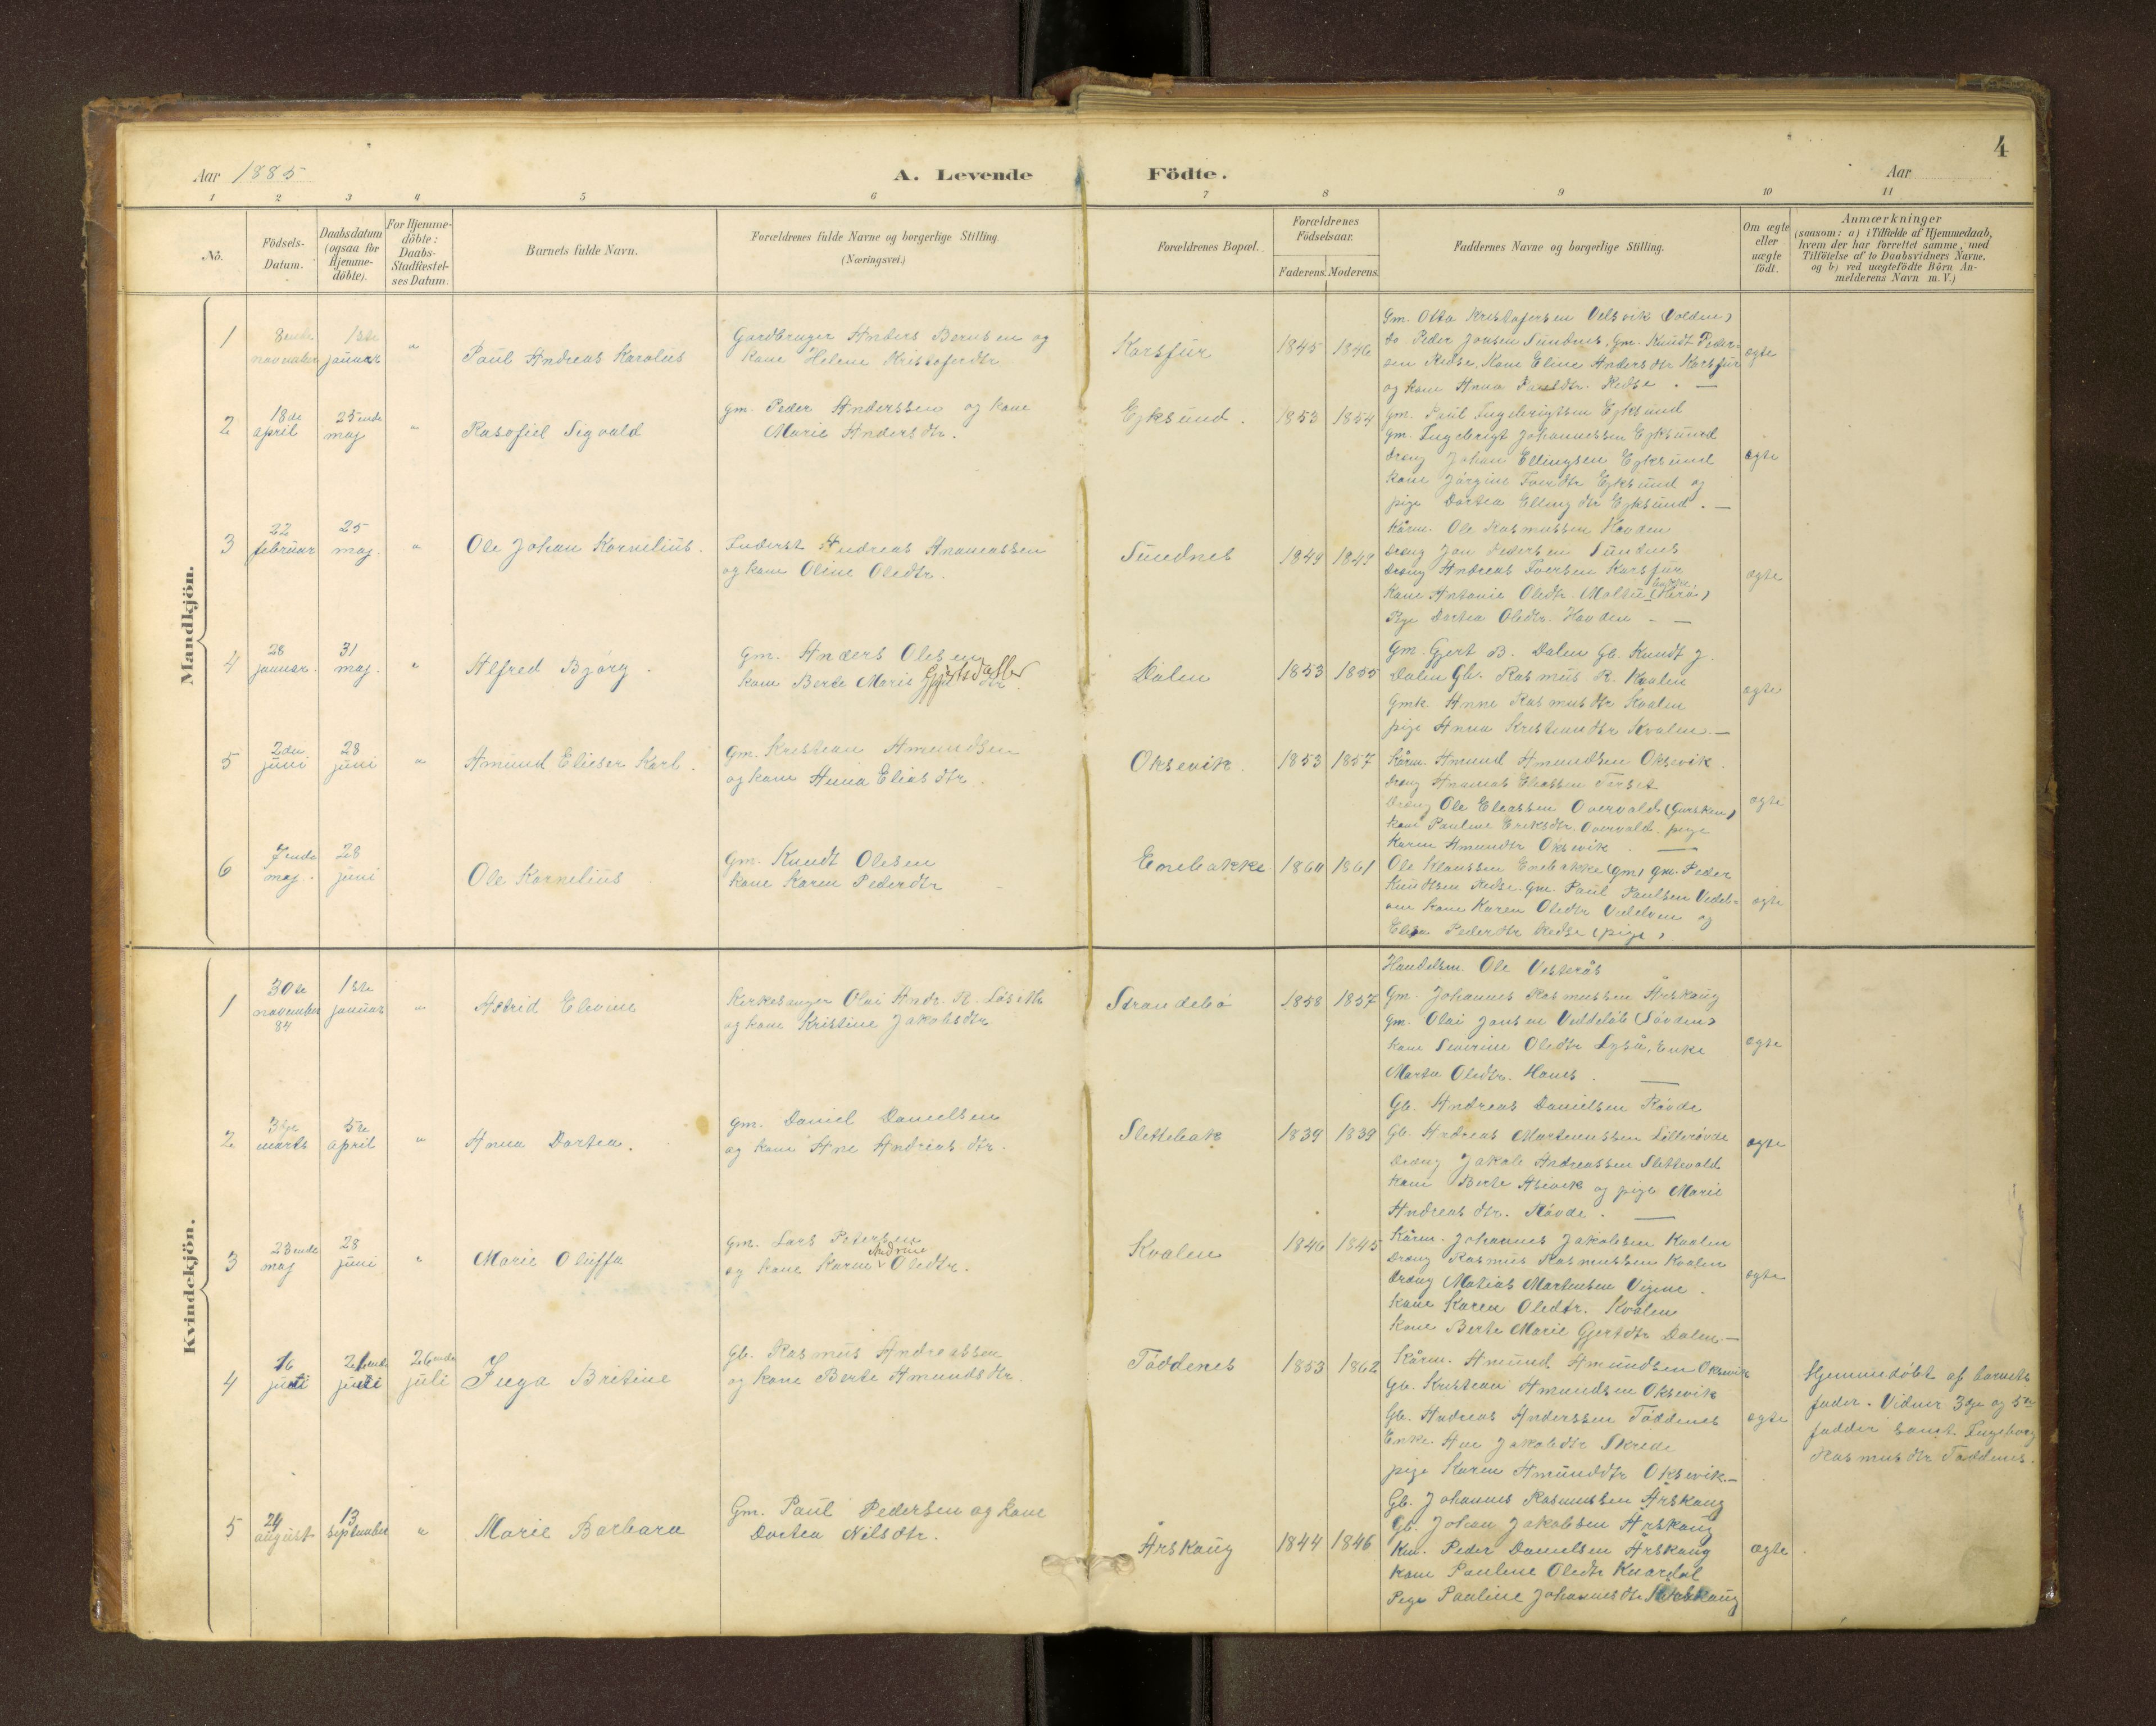 4
Aar 1885
A. Levende Födte.
Aar
1 2 3 4 5 6 7 8 9 10 11
No.
Födsels-Datum.
Daabsdatum (ogsaa for Hjemme-döbte).
For Hjemme-döbte: Daabs-Stadfæstel-ses Datum.
Barnets fulde Navn.
Forældrenes fulde Navne og borgerlige Stilling.
(Næringsvei.)
Forældrenes Bopæl.
Forældrenes Födselsaar.
Faderens. Moderens.
Faddernes Navne og borgerlige Stilling.
Om ægte eller uægte født.
Anmærkninger
(saasom: a) i Tilfælde af Hjemmedaab,
hvem der har forrettet samme, med
Tilföielse af to Daabsvidners Navne,
og b) ved uægtefödte Börn An-
melderens Navn m.V.)
Mandkjön.
1
november
1ste januar
"
Paul Andreas Karolius
Gardbruger Anders Bernsen og
kone Helene Kristoferdtr
Korsfur
1845 1846
Gm. Otto Kristofersen Velsvik (Volden)
do Peder Jonsen Sundnes, gm. Knudt Peder-
sen Redse, Kone Eline Andersdtr Korsfur
og kone Anna Paulsdtr. Redse . —
ægte
2
18de april
25ende maj
"
Rasofiel Sigvald
gm. Peder Anderssen og kone
Marie Andersdtr.
Ejksund.
1853 1854
gm. Paul Ingebrigtsen Ejksund
gm. Ingebrigt Johannessen Ejksund
dreng Johan Ellingsen Ejksund
kone Jörgine Iverdtr Ejksund og
pige Dortea Ellingdtr Ejksund. —
ægte
3
22 februar
25 maj.
"
Ole Johan Kornilius.
Inderst Andreas Ananiassen
og kone Oline Oledtr.
Sundnes
1849 1849
Kårm. Ole Rasmussen Havden
dreng Jon Pedersen Sundnes
dreng Andreas Iversen Korsfur
Kone Antonie Oledtr. Moltu (Herø)
Pige Dortea Oledtr. Havden — —
ægte
4
28 januar.
31 maj.
"
Alfred Bjørg.
gm. Anders Olesen
kone Berte Marie Gjertsdatter
Dalen
1853 1855
Gm. Gjert B. Dalen Gb. Knudt J.
Dalen Gb. Rasmus R. Kvalen
Gmk. Anne Rasmusdtr Kvalen
pige Anna Kristiandtr Kvalen. —
ægte
5
2den juni
28 juni
"
Amund Elieser Karl.
Gm. Kristian Amundsen
og kone Anna Eliasdtr.
Oksevik.
1853 1857
Kårm. Amund Amundsen Oksevik.
dreng Ananias Eliassen
dreng Ole Eliassen Overvald (Gursken)
kone Pauline Eriksdtr. Overvald. pige
Karen Amundtr Oksevik . —
ægte
6
7ende maj.
28 juni
Ole Kornelius
gm. Knudt Olesen
kone Karen Pederdtr
Enebakke
1860 1861
Ole Klaussen Enebakke (gm) gm. Peder
Knudtsen Redse. gm. Paul Paulsen Vedel-
om kone Karen Oledtr og
Elisa Pederdtr Redse (pige)
ægte
Kvindekjön.
1
30te november 84
1ste januar
"
Astrid Elevine
Kirkesanger Olai Andr. R. Løseth
og kone Kristine Jakobsdtr
Strandebö
1858 1857
Handelsm. Ole Vesterås
gm. Johannes Rasmussen Årskaug
gm. Olai Jonsen (Søvden)
kone Severine Oledtr , Enke
Marta Oledtr. Hanes . —
ægte
2
3dje marts
5te april
"
Anna Dortea.
gm. Daniel Danielsen
og kone Ane Andreasdtr.
Slettebak
1839 1839
Gb. Andreas Danielsen Rövde
Gb. Andreas Martinussen Lillerövde
dreng Jakob Andreassen Slettevold
kone Berte Aševik og pige Marie
Andreasdtr. Rövde . —
ægte
3
23ende maj
28 juni
"
Marie Oluffa
gm. Lars Petersen
Andrine
og kone Karen Oledtr.
Kvalen
1846 1845
Kårm. Johannes Jakobsen Kvalen
dreng Rasmus Rasmussen Kvalen
dreng Matias Martensen
kone Karen Oledtr. Kvalen
kone Berte Marie Gjertdtr Dalen. —
ægte
4
16 juli
21ende juli
26ende juli
Inga Britine
Gb. Rasmus Andreassen
og kone Berte Amundsdtr.
Töddenes
1853 1862
Kårm. Amund Amundsen Oksevik
Gb. Kristian Amundsen Oksevik
Gb. Andreas Anderssen Töddenes
Enke Ane Jakobdtr Skrede
pige Karen Amunddtr Oksevik. —
ægte
Hjemmedøbt af barnets
fader. Vidner 3dje og 5te
fadder samt Ingeborg
Rasmusdtr Töddenes.
5
24 august
13 september
"
Marie Barbara
Gm. Paul Pedersen og kone
Dortea Nilsdtr.
Årskaug
1844 1846
Gb. Johannes Rasmussen Årskaug
Gb. Johan Jakobsen Årskaug
Km. Peder Danielsen Årskaug
kone Pauline Oledtr
Pige Pauline Johannesdtr Årskaug
ægte